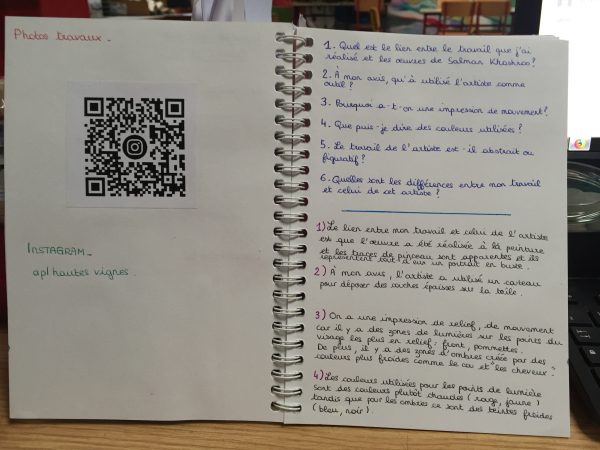 Photos travaux.
INSTAGRAM.
apl hautes vignes.
1. Quel est le lien entre le travail que j'ai
réalisé et les œuvres de Salman Khoshroo?
2. À mon avis, qu'à utilisé l'artiste comme
outil?
3. Pourquoi a-t-on une impression de mouvement?
4. Que puis-je dire des couleurs utilisées?
5. Le travail de l'artiste est-il abstrait ou
figuratif?
6. Quelles sont les différences entre mon travail
et celui de cet artiste?
1) Le lien entre mon travail et celui de l'artiste
est que l'œuvre a été réalisée à la peinture
et les traces de pinceau sont apparentes et ils
représentent tout d'eux un portrait en buste.
2) À mon avis, l'artiste a utilisé un couteau
pour déposer des couches épaisses sur la toile.
3) On a une impression de relief, de mouvement
car il y a des zones de lumières sur les points du
visage les plus en relief: front, pommettes.
De plus, il y a des zones d'ombres créée par des
couleurs plus froides comme le cou et les cheveux.
4) Les couleurs utilisées pour les points de lumière
sont des couleurs plutôt chaudes (rouge, jaune)
tandis que pour les ombres ce sont des teintes froides
(bleu, noir).